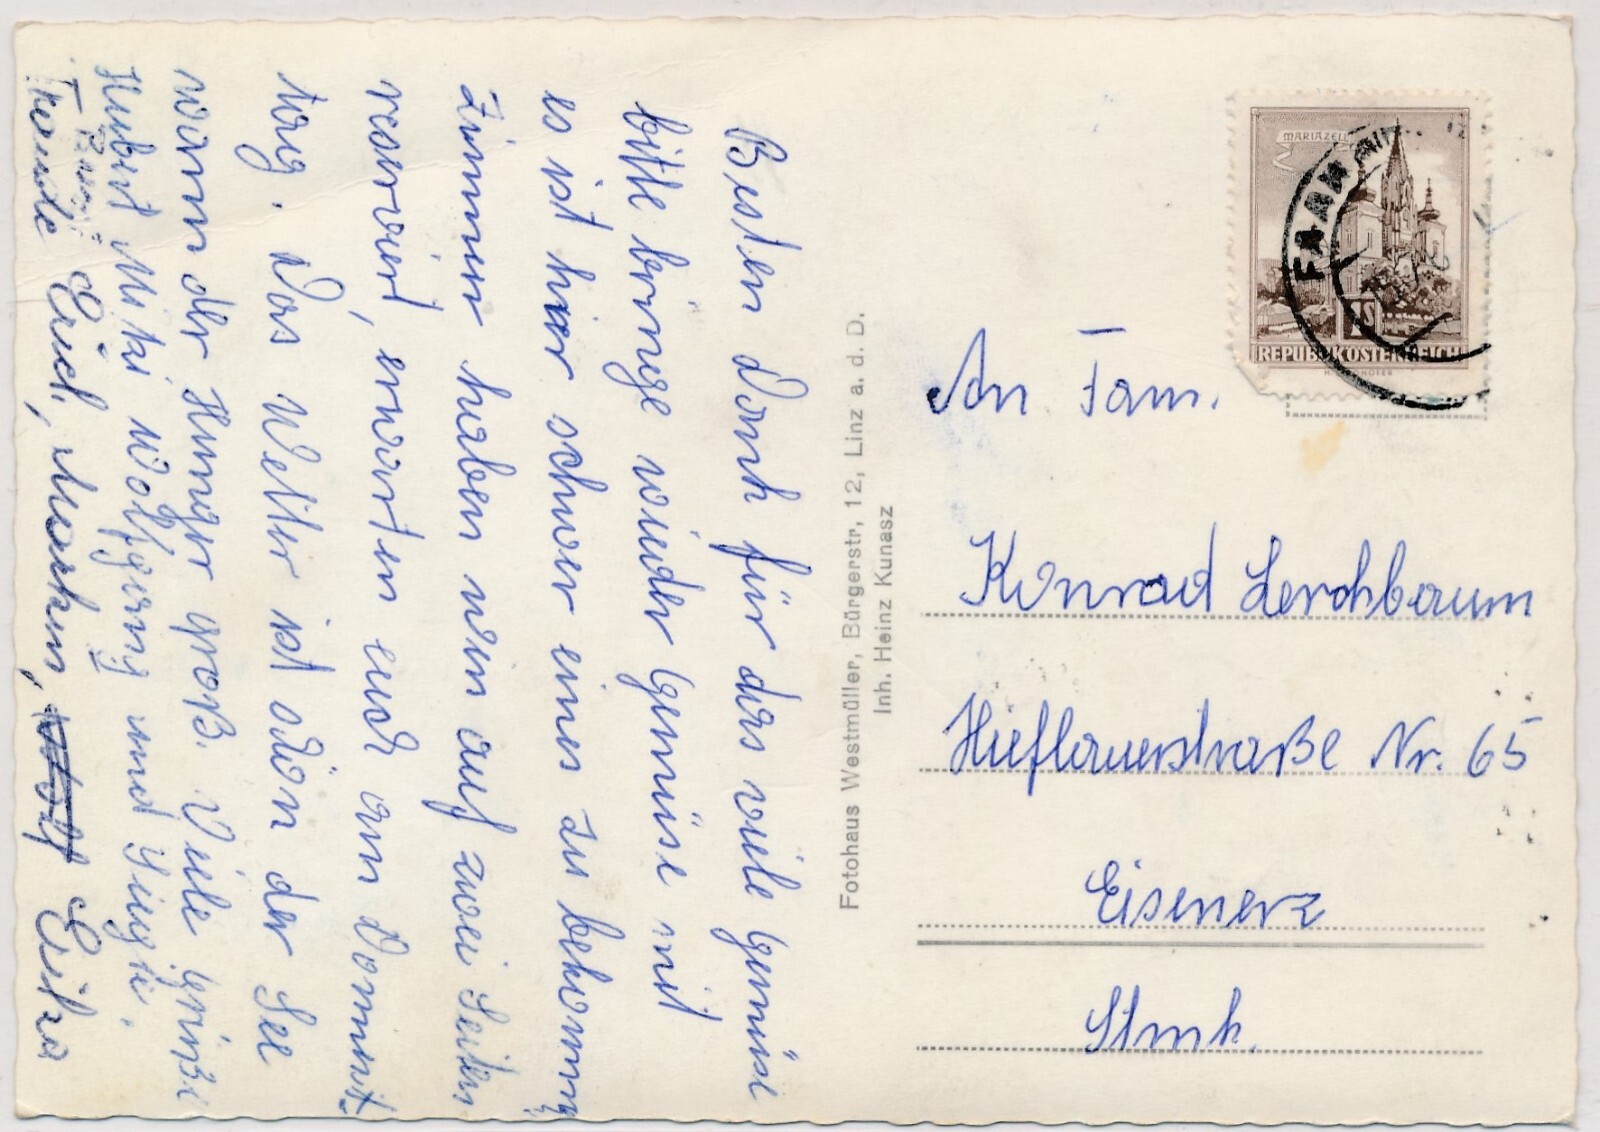 Besten Dank für das viele Gemüse
bitte bringe wieder Gemüse mit
es ist hier schwer eines zu bekommen,
Zimmer haben wir auf zwei Seiten
reserviert, erwarten euch am Donners-
tag. Das Wetter ist schön der See
warm der Hunger groß. Viele Grüße
Hubert Mitzi Wolfgang und
Erich,
Erika
Fotohaus Westmüller, Bürgerstr, 12, Linz a. d. D.
Inh. Heinz Kunasz
MARIAZELL
1S
REPUBLIK ÖSTERREICH
An Fam.
Konrad Lerchbaum
Hieflauerstraße Nr. 65
Eisenerz
Stmk.